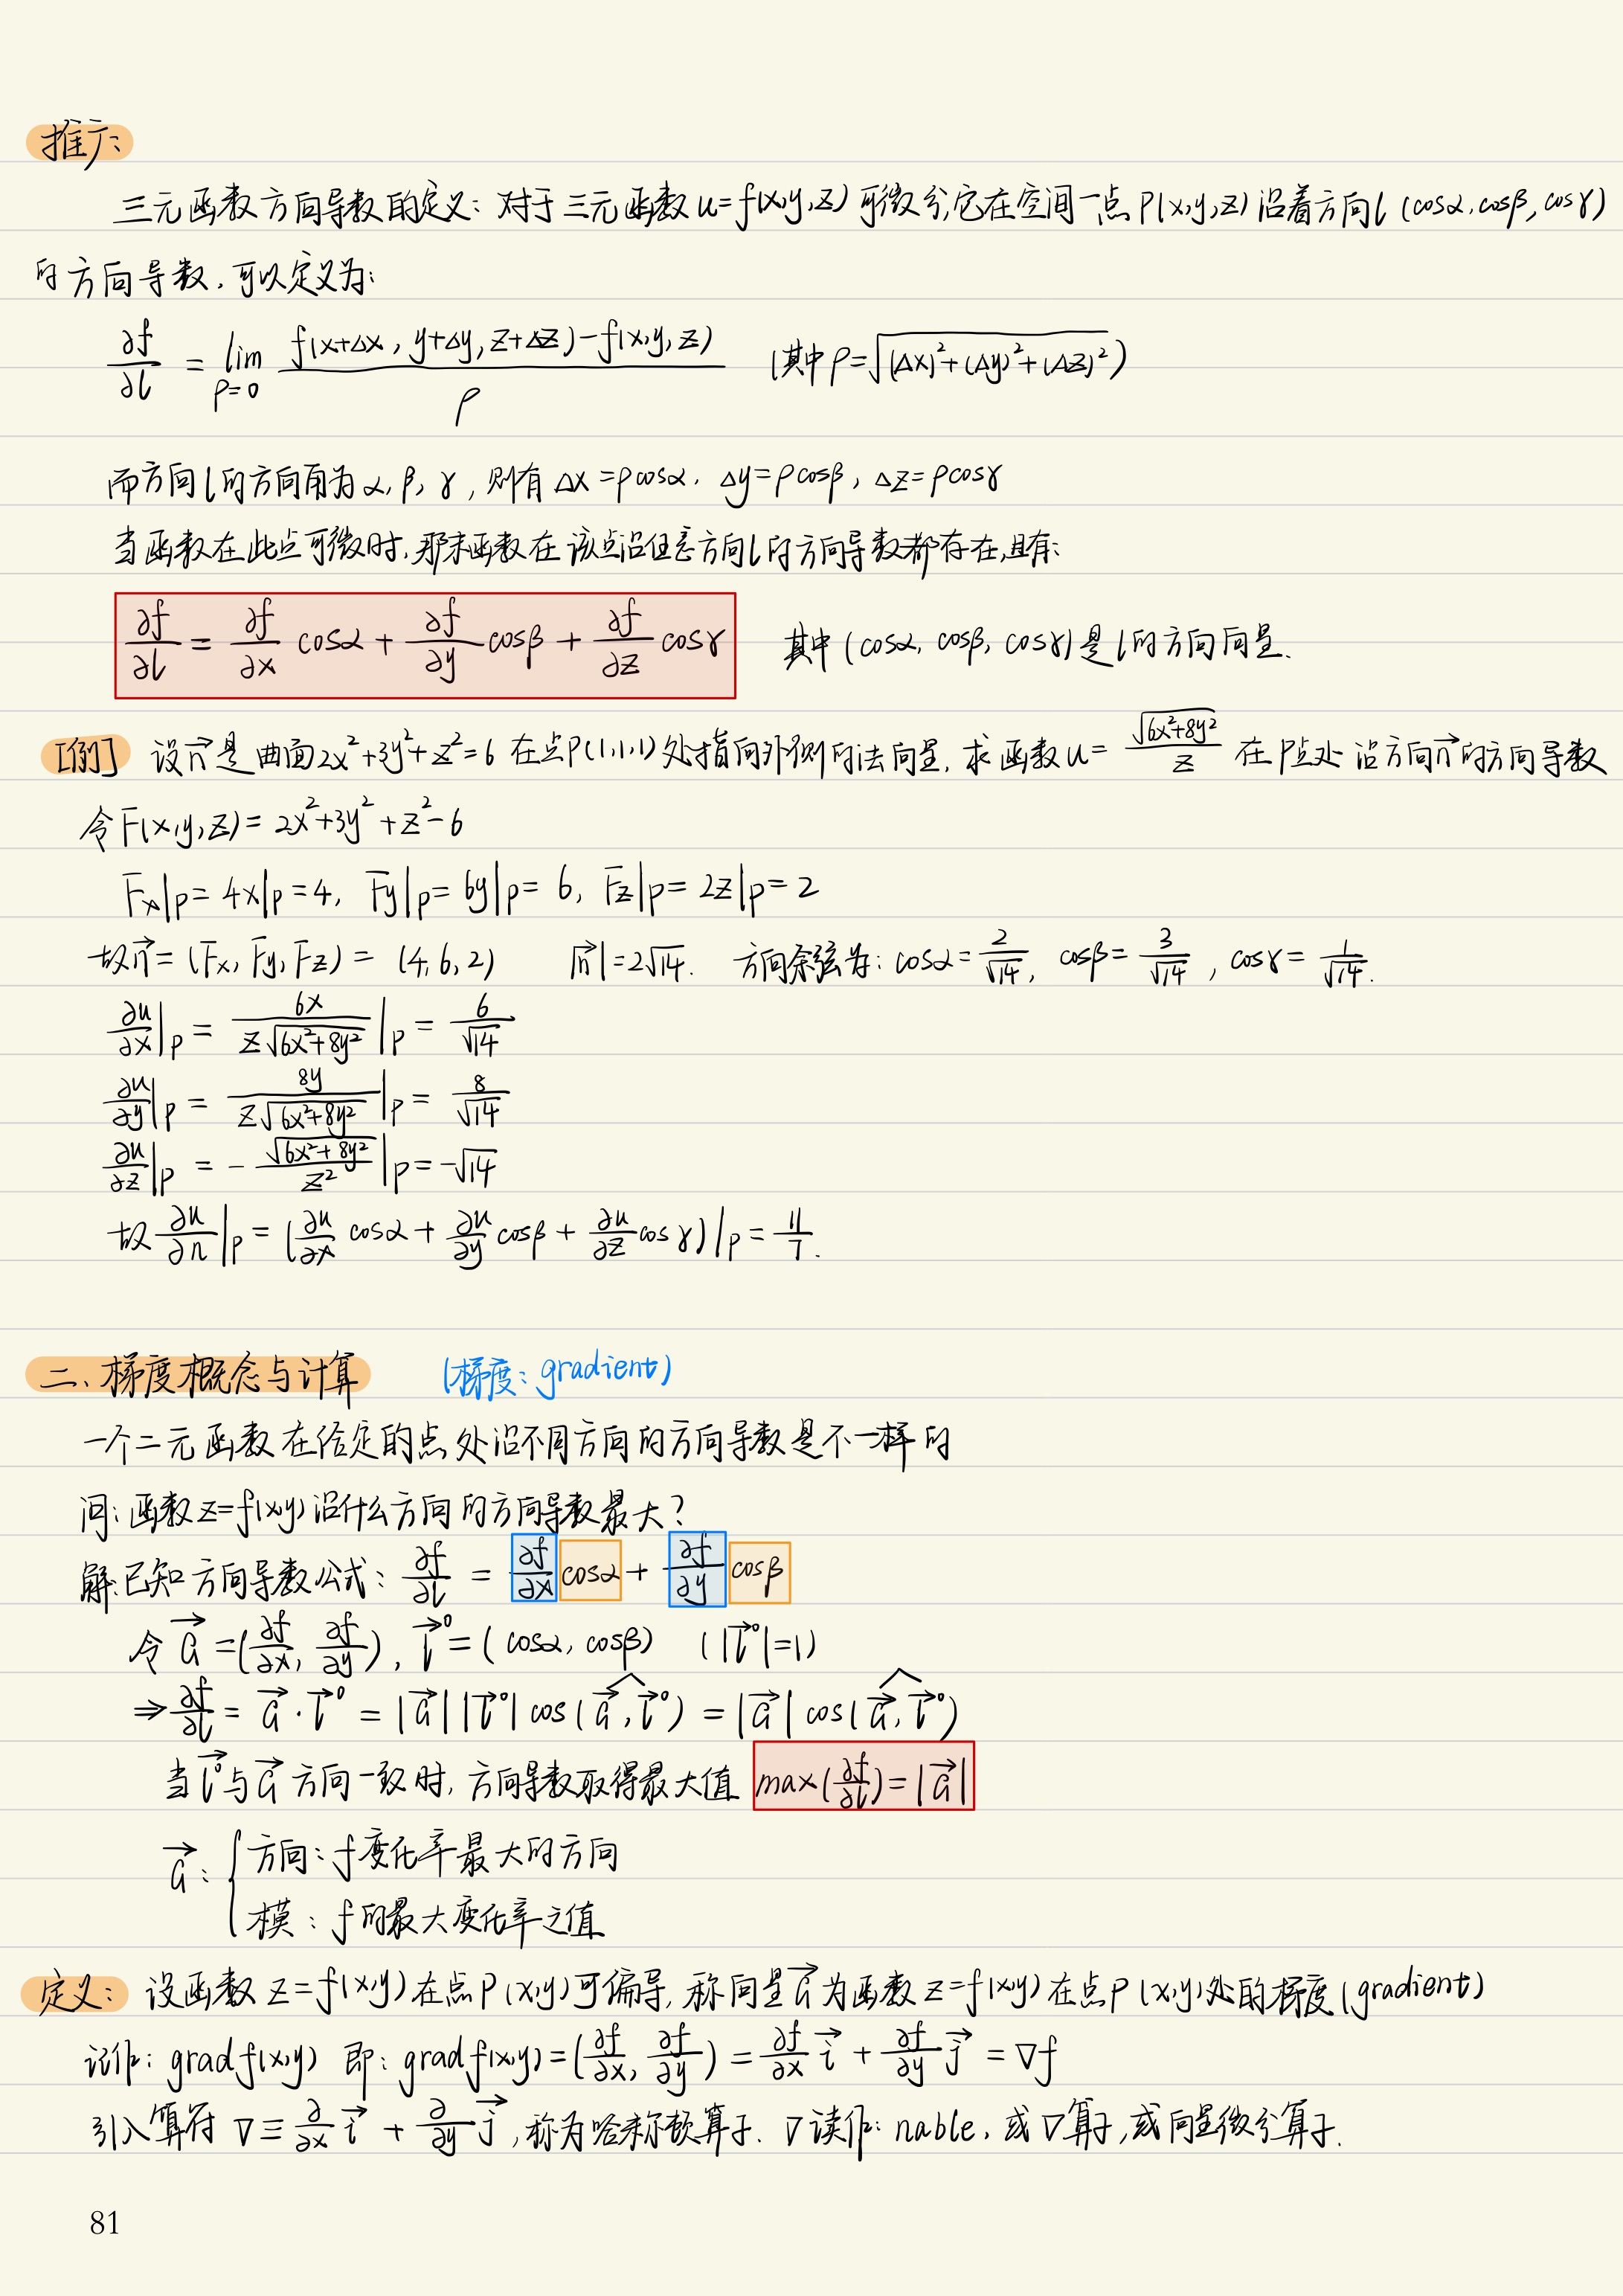 推广：
三元函数方向导数的定义：对于三元函数 u=f(x,y,z) 可微分，它在空间一点 P(x,y,z) 沿着方向 l (cosα, cosβ, cosγ)
的方向导数，可以定义为：
∂f/∂l = lim ρ=0 (f(x+Δx, y+Δy, z+Δz)-f(x,y,z))/ρ (其中 ρ=√((Δx)²+(Δy)²+(Δz)²))
而方向 l 的方向角为 α, β, γ, 则有 Δx=ρcosα, Δy=ρcosβ, Δz=ρcosγ
当函数在此点可微时, 那末函数在该点沿任意方向 l 的方向导数都存在,且有:
∂f/∂l = ∂f/∂x cosα + ∂f/∂y cosβ + ∂f/∂z cosγ 其中 (cosα, cosβ, cosγ) 是 l 的方向向量.
[例] 设n⃗是曲面2x²+3y²+z²=6 在点P(1,1,1)处指向外侧的法向量, 求函数u=√(6x²+8y²)/z 在P点处沿方向n⃗的方向导数
令F(x,y,z)= 2x²+3y²+z²-6
Fx|p= 4x|p=4, Fy|p= 6y|p= 6, Fz|p= 2z|p=2
故n⃗= (Fx, Fy, Fz) = (4, 6, 2) |n⃗|=2√14. 方向余弦为: cosα=2/√14, cosβ=3/√14, cosγ=1/√14.
∂u/∂x|p = 6x/(z√(6x²+8y²))|p = 6/√14
∂u/∂y|p = 8y/(z√(6x²+8y²))|p = 8/√14
∂u/∂z|p = -√(6x²+8y²)/z²|p=-√14
故 ∂u/∂n|p = (∂u/∂x cosα + ∂u/∂y cosβ + ∂u/∂z cosγ)|p = 11/7.
二、梯度概念与计算 (梯度: gradient)
一个二元函数在给定的点处沿不同方向的方向导数是不一样的
问: 函数 z=f(x,y) 沿什么方向的方向导数最大?
解:已知方向导数公式: ∂f/∂l = ∂f/∂x cosα + ∂f/∂y cosβ
令 G⃗ =(∂f/∂x, ∂f/∂y), l⃗⁰ = (cosα, cosβ) (|l⃗⁰|=1)
⇒ ∂f/∂l = G⃗·l⃗⁰ = |G⃗||l⃗⁰| cos(G⃗,l⃗⁰) = |G⃗| cos(G⃗,l⃗⁰)
当 l⃗⁰ 与 G⃗ 方向一致时, 方向导数取得最大值 max(∂f/∂l)=|G⃗|
G⃗: { 方向: f变化率最大的方向
模: f的最大变化率之值
定义: 设函数 z=f(x,y) 在点 P(x,y) 可偏导, 称向量G⃗为函数 z=f(x,y) 在点 P(x,y)处的梯度 (gradient)
记作: gradf(x,y) 即: gradf(x,y)=(∂f/∂x, ∂f/∂y) = ∂f/∂x i⃗ + ∂f/∂y j⃗ = ∇f
引入算符 ∇≡∂/∂x i⃗ + ∂/∂y j⃗, 称为哈密顿算子. ∇读作: nable, 或∇算子, 或向量微分算子.
81